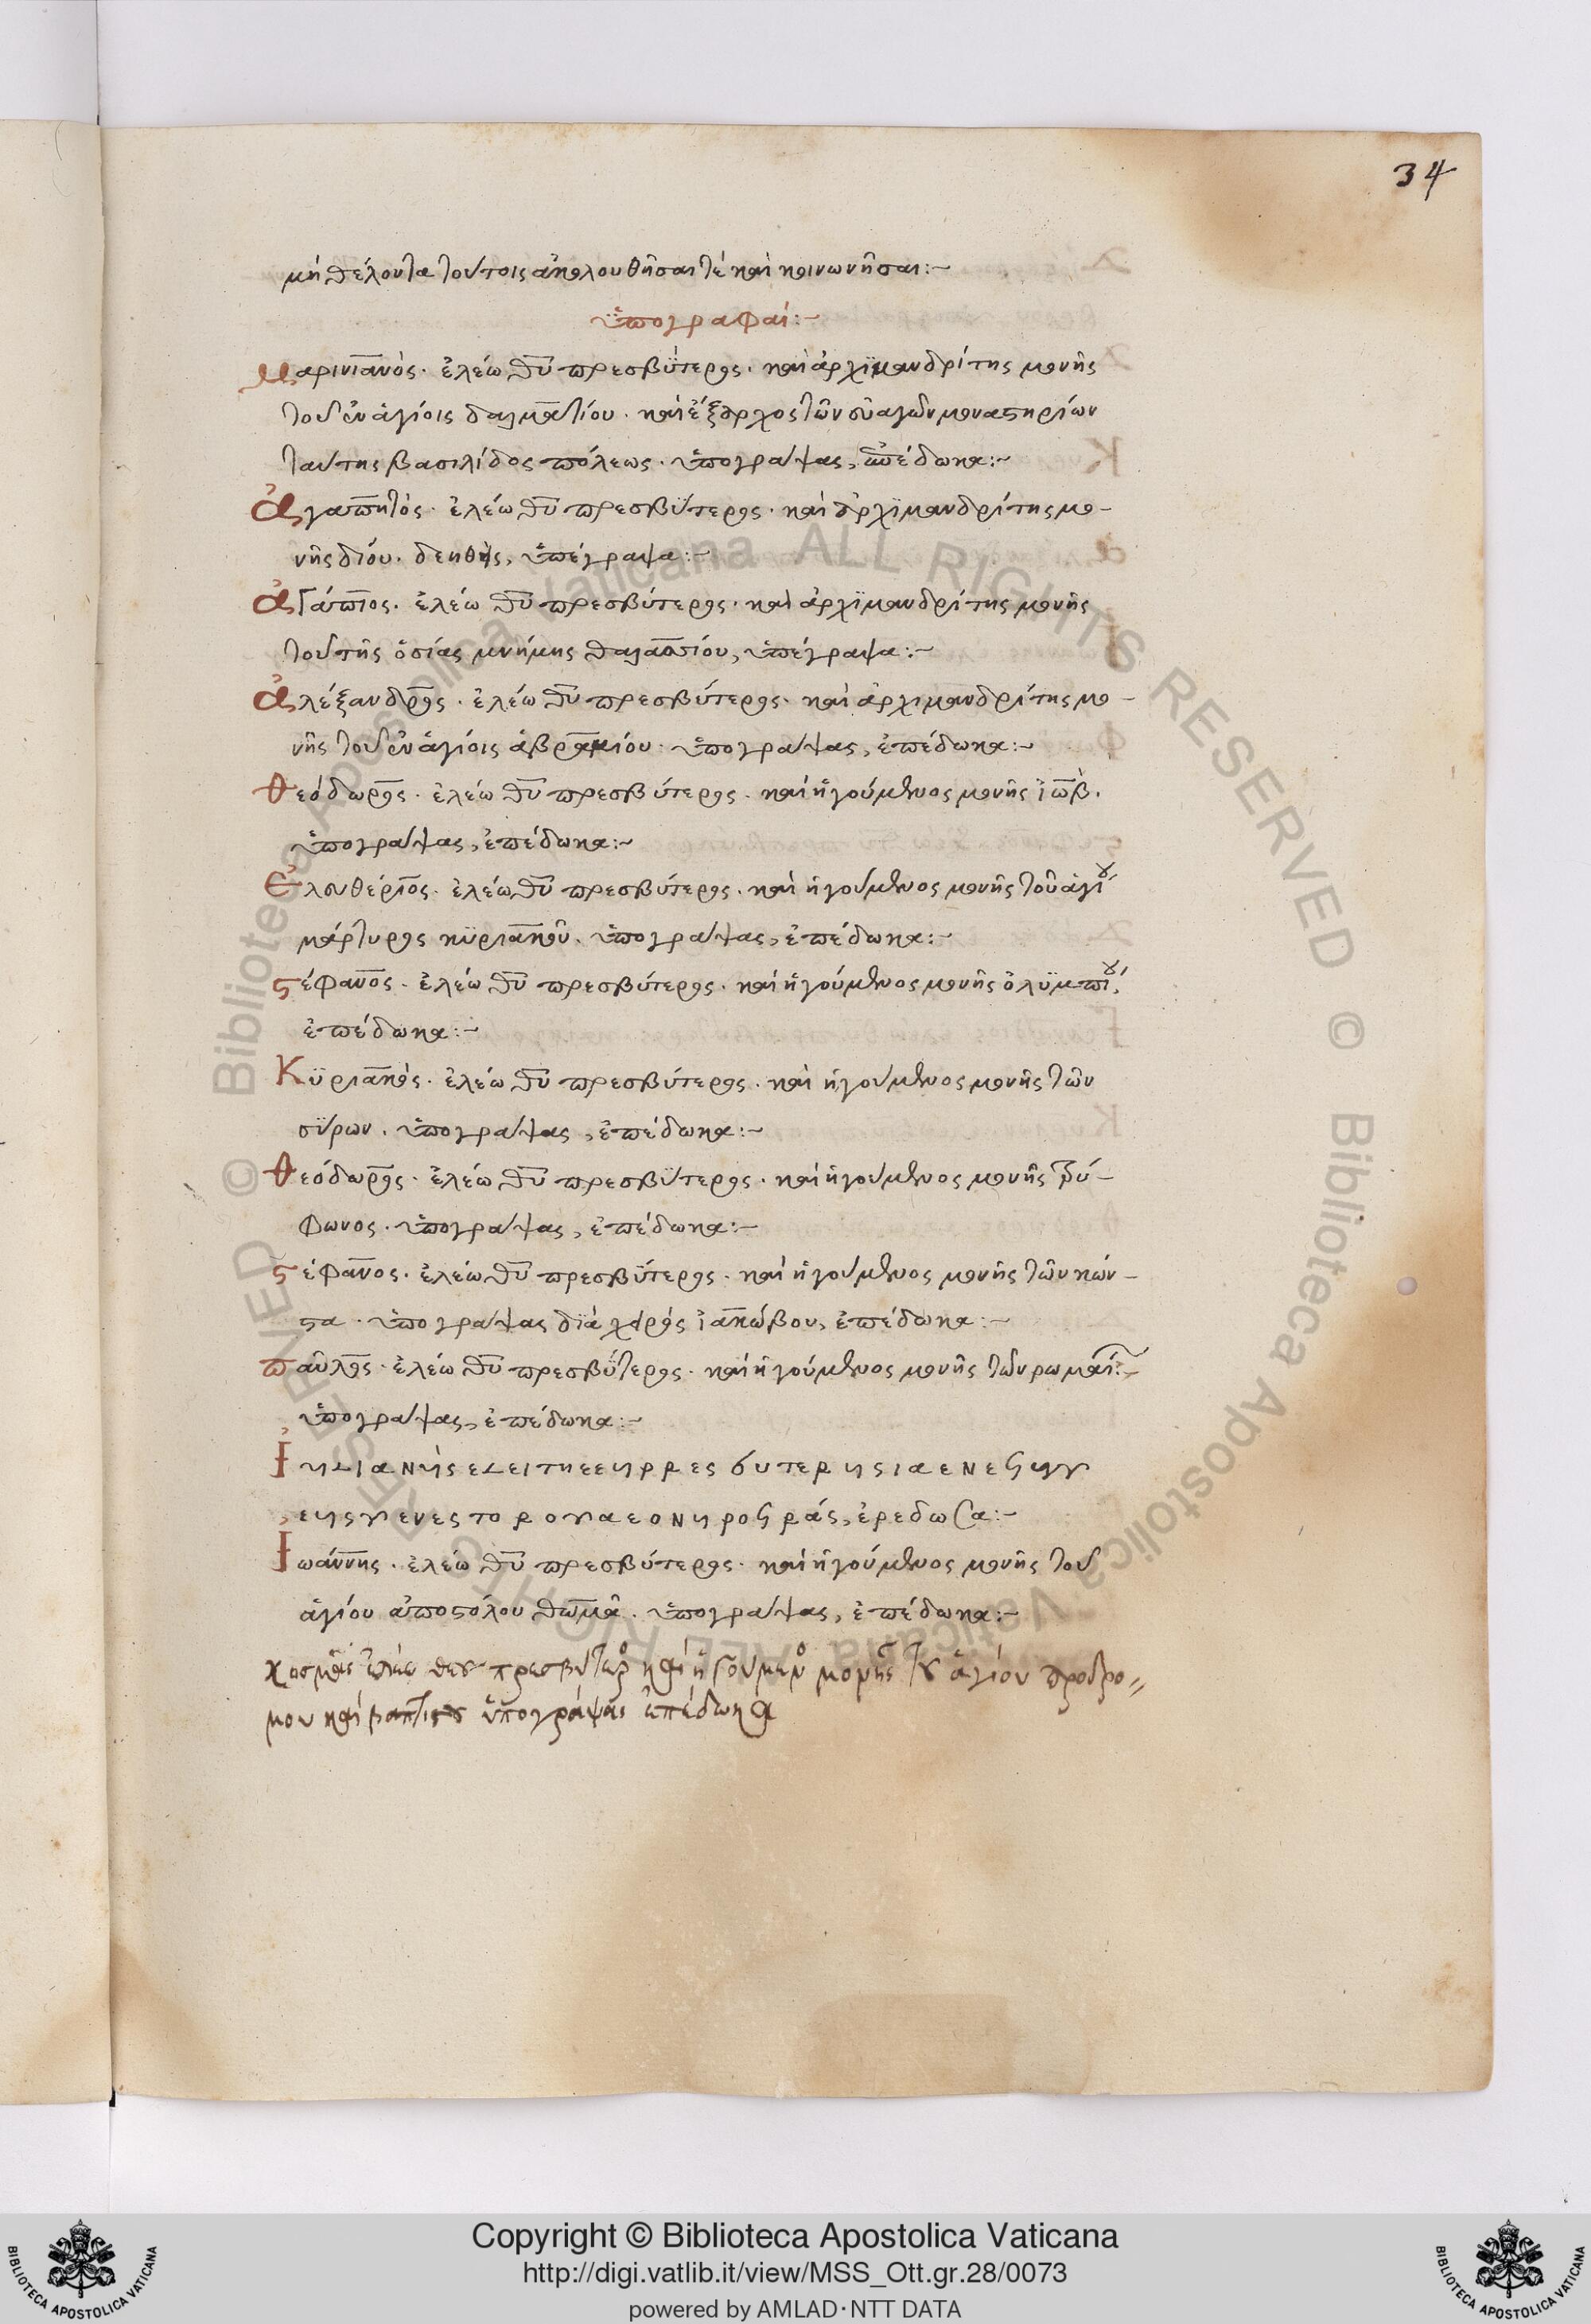 34
μὴ θέλοντα τούτοις ἀκολουθῆσαι τὲ καὶ κοινωνῆσαι:~
ὑπογραφαί:~
Μαρινιανὸς. ἐλέω θυ πρεσβύτερος. καὶ ἀρχϊμανδρίτης μονῆς
τοῦ ἐν ἁγίοις δαλματίου. καὶ ἔξαρχος τῶν εὐαγῶν μοναστηρίων
ταύτης βασιλίδος πόλεως. ὑπογράψας, ἐπέδωκα:~
Ἀγαπητὸς. ἐλέω θυ πρεσβύτερος. καὶ ἀρχϊμανδρίτης μο-
νῆς δίου. δεηθεὶς, ὑπέγραψα:~
Ἀγάπιος. ἐλέω θυ πρεσβύτερος. καὶ ἀρχϊμανδρίτης μονῆς
τοῦ τῆς ὁσίας μνήμης θαλασσίου, ὑπέγραψα:~
Ἀλέξανδρος. ἐλέω θυ πρεσβύτερος. καὶ ἀρχιμανδρίτης μο-
νῆς τοῦ ἐν ἁγίοις ἀβραμίου. ὑπογράψας, ἐπέδωκα:~
Θεόδωρος. ἐλέω θυ πρεσβύτερος. καὶ ἡγούμενος μονῆς ἰὼβ.
ὑπογράψας, ἐπέδωκα:~
Ἐλευθέριος. ἐλέω θυ πρεσβύτερος. καὶ ἡγούμενος μονῆς τοῦ ἁγίου
μάρτυρος κϋριακοῦ. ὑπογράψας, ἐπέδωκα:~
Στέφανος. ἐλέω θυ πρεσβύτερος. καὶ ἡγούμενος μονῆς ὀλϋμπίου,
ἐπέδωκα:~
Κϋριακὸς. ἐλέω θυ πρεσβύτερος. καὶ ἡγούμενος μονῆς τῶν
σύρων. ὑπογράψας, ἐπέδωκα:~
Θεόδωρος. ἐλέω θυ πρεσβύτερος. καὶ ἡγούμενος μονῆς τρύ-
φωνος. ὑπογράψας, ἐπέδωκα:~
Στέφανος. ἐλέω θυ πρεσβύτερος. καὶ ἡγούμενος μονῆς τῶν κών-
στα. ὑπογράψας διὰ χειρὸς ἰακώβου, ἐπέδωκα:~
Παῦλος. ἐλέω θυ πρεσβύτερος. καὶ ἡγούμενος μονῆς τῶν ρωμαί:~
ὑπογράψας, ἐπέδωκα:~
Ἰωάννης. ἐλέω θυ πρεσβύτερος. καὶ ἡγούμενος μονῆς τοῦ
ἁγίου ἀποστόλου θωμᾶ. ὑπογράψας, ἐπέδωκα:~
χοσμᾶς ἐλέω θεου πρεσβύτερος καὶ ἡγούμενος μονῆς του ἁγίου προδρο-
μου καὶ βαπτιστου ὑπογράψας ἐπέδωκα
Copyright © Biblioteca Apostolica Vaticana
http://digi.vatlib.it/view/MSS_Ott.gr.28/0073
powered by AMLAD·NTT DATA
BIBLIOTECA APOSTOLICA VATICANA
BIBLIOTECA APOSTOLICA VATICANA
© Biblioteca Apostolica Vaticana ALL RIGHTS RESERVED © Biblioteca Apostolica Vaticana ALL RIGHTS RESERVED